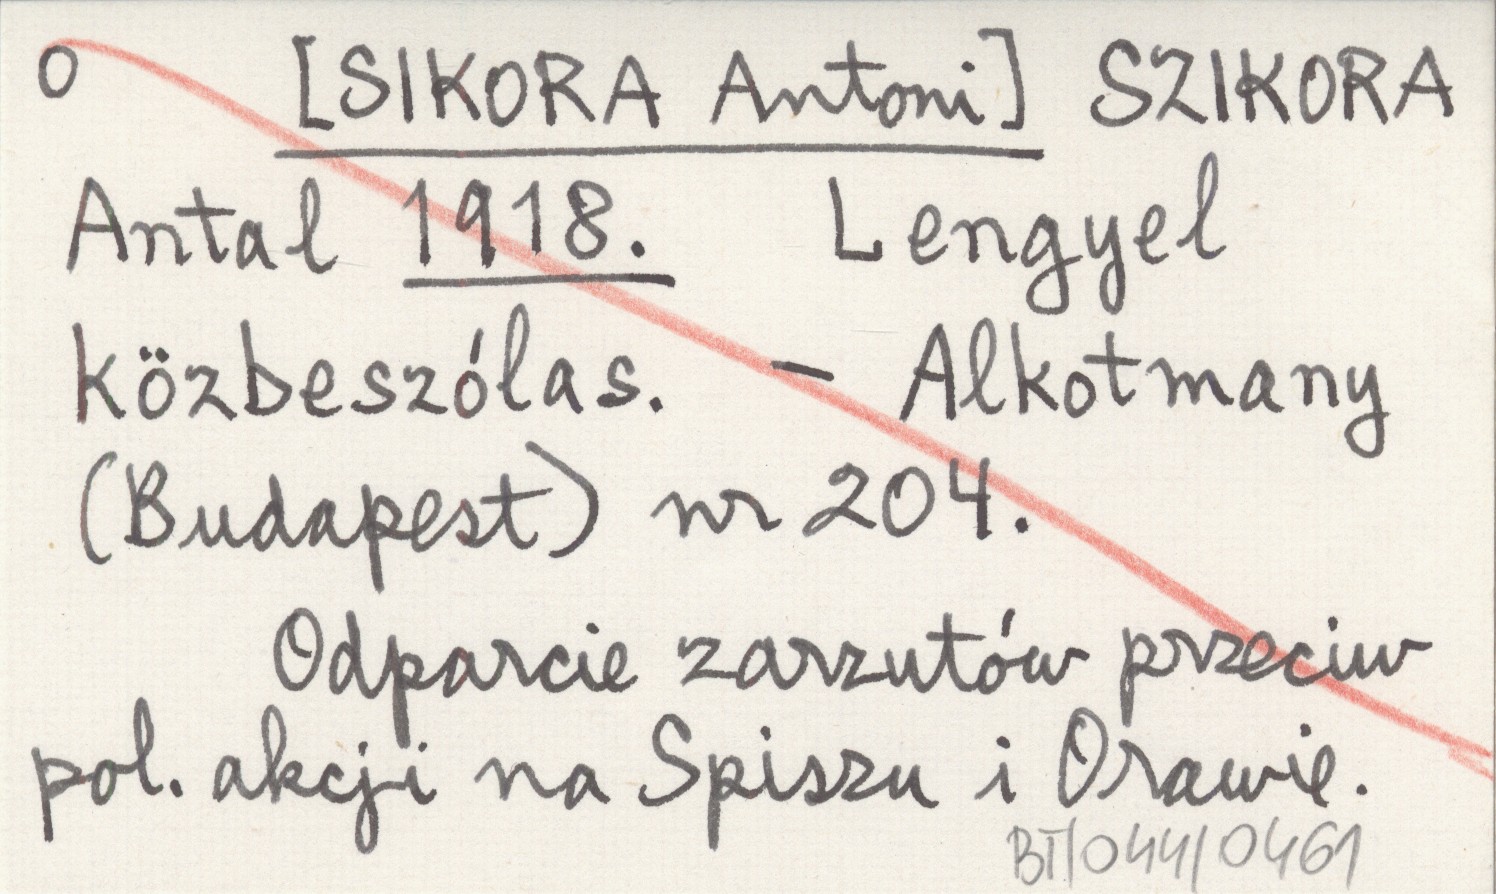 O [SIKORA Antoni] SZIKORA
Antal 1918. Lengyel
közbeszólas. - Alkotmany
(Budapest) nr 204.
Odparcie zarzutów przeciw
pol. akcji na Spiszu i Orawie.
BT/044/0461